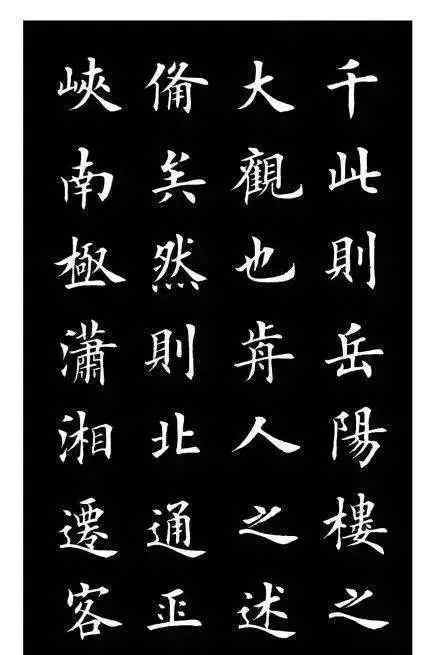 千此則岳陽樓之
大觀也歬人之述
備矣然則北通巫
峽南極瀟湘遷客